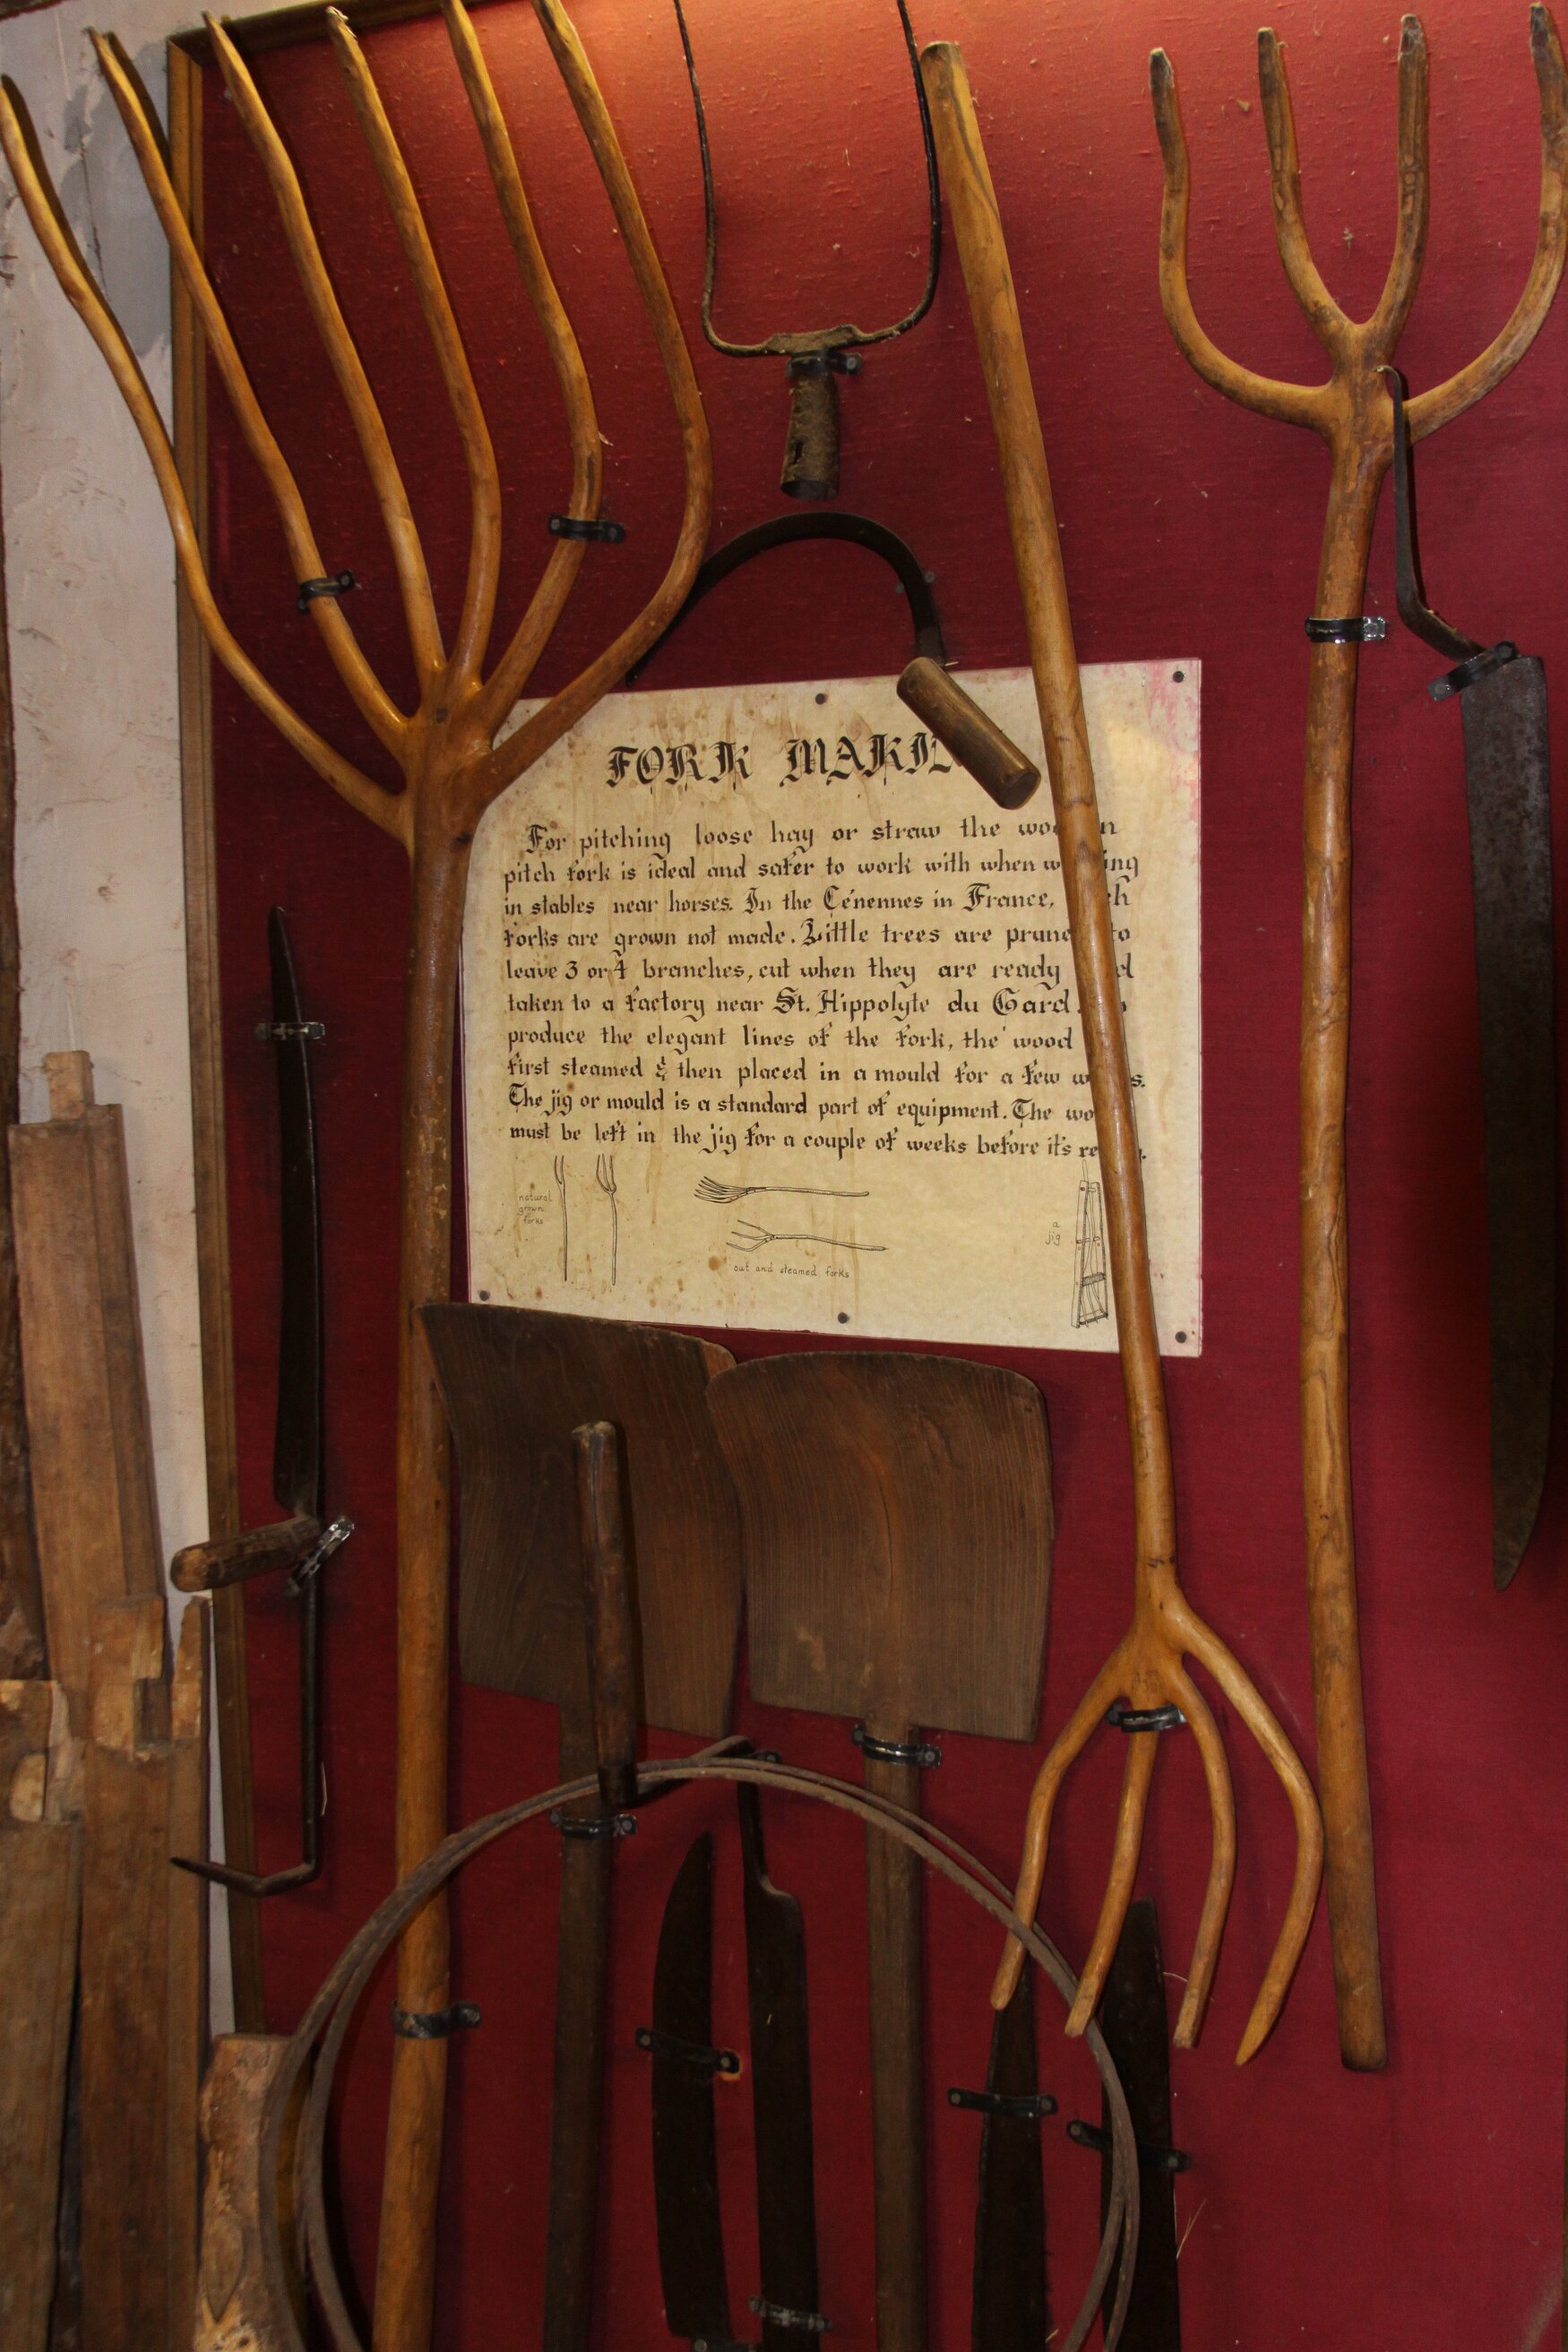 FORK MAKIN
For pitching loose hay or straw the wooden
pitch fork is ideal and safer to work with when working
in stables near horses. In the Cénennes in France,
forks are grown not made. Little trees are pruned to
leave 3 or 4 branches, cut when they are ready and
taken to a factory near St. Hippolyte du Gard.
produce the elegant lines of the fork, the wood
first steamed & then placed in a mould for a few
The jig or mould is a standard part of equipment. The
must be left in the jig for a couple of weeks before it's ready.
natural
grown
forks
cut and steamed forks
a
jig